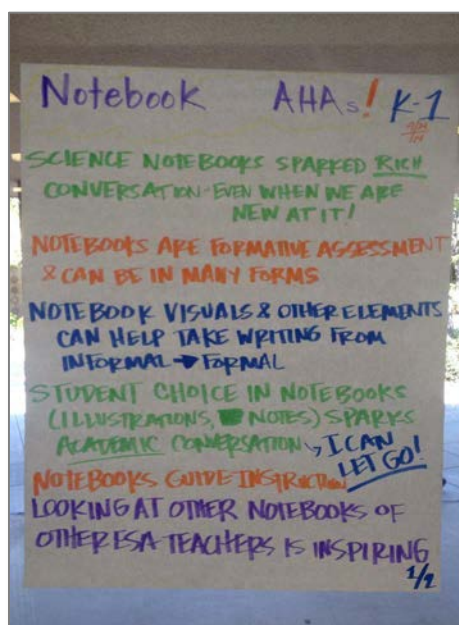 Notebook AHAs! K-1
SCIENCE NOTEBOOKS SPARKED RICH
CONVERSATION-EVEN WHEN WE ARE
NEW AT IT!
NOTEBOOKS ARE FORMATIVE ASSESSMENT
& CAN BE IN MANY FORMS
NOTEBOOK VISUALS & OTHER ELEMENTS
CAN HELP TAKE WRITING FROM
INFORMAL → FORMAL
STUDENT CHOICE IN NOTEBOOKS
(ILLUSTRATIONS, NOTES) SPARKS
ACADEMIC CONVERSATION → I CAN
LET GO!
NOTEBOOKS GUIDE INSTRUCTION
LOOKING AT OTHER NOTEBOOKS OF
OTHER ESA TEACHERS IS INSPIRING
1/2